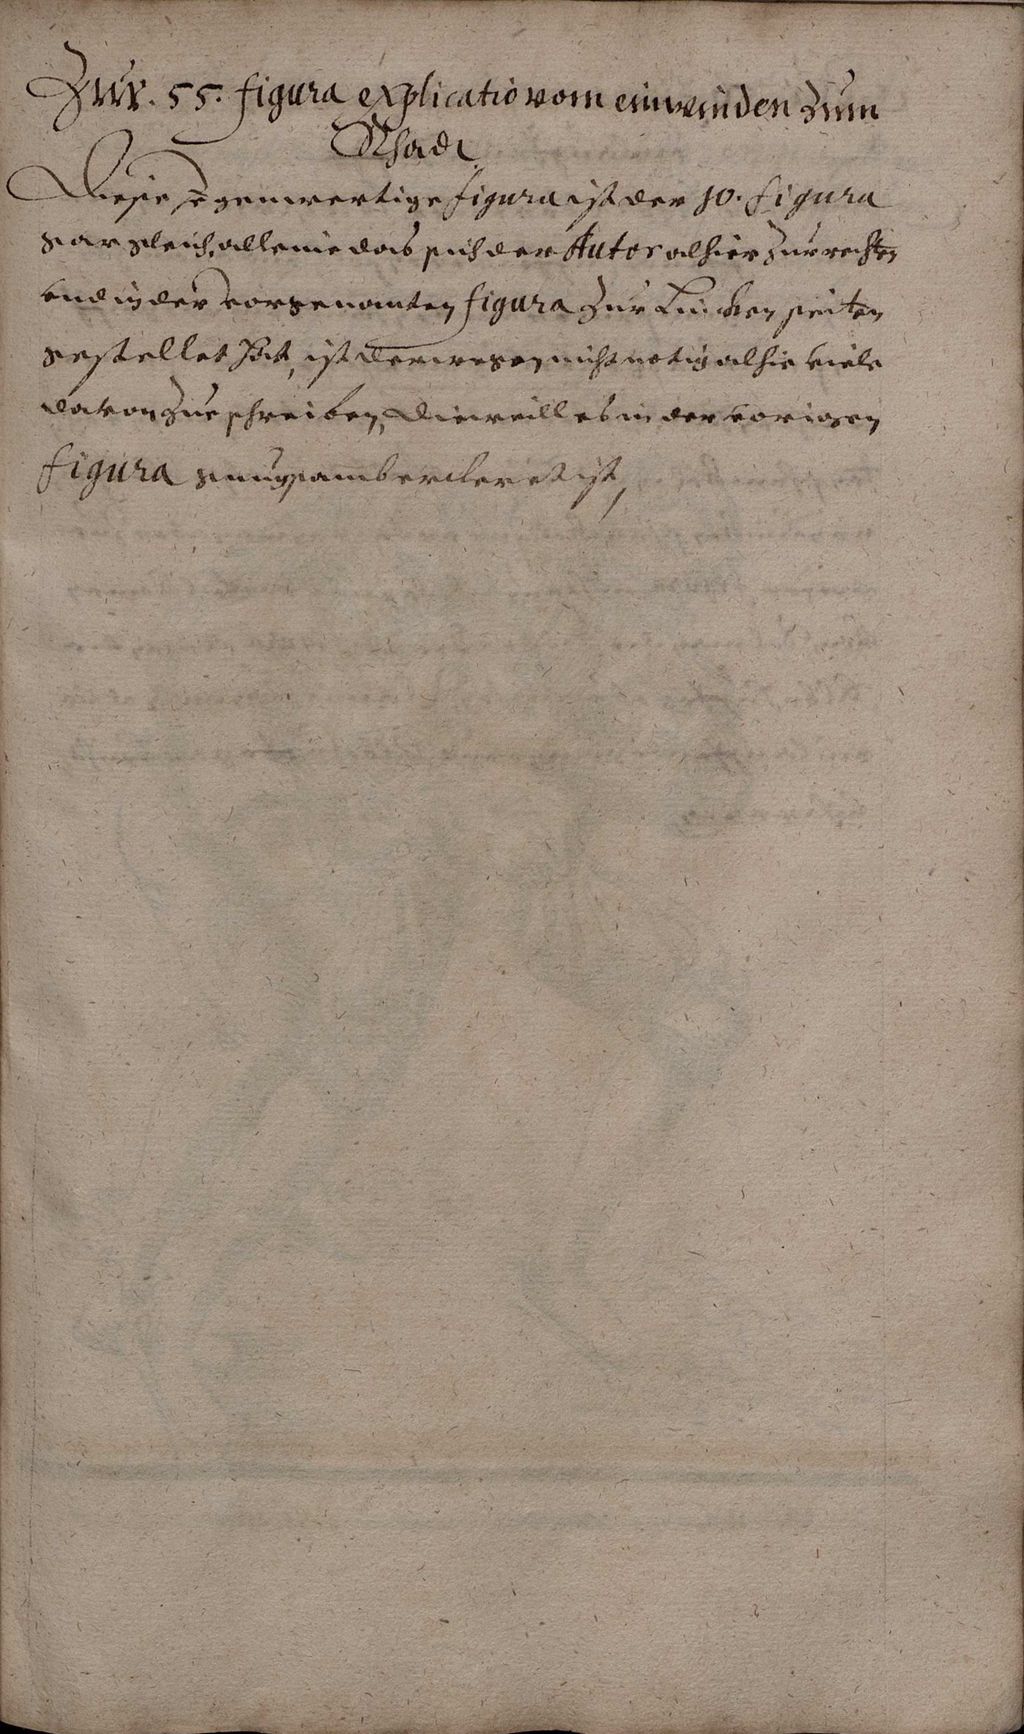 Zur. 55. figura explicatio vom einwinden zum
Rhadt
Diese gegenwertige figura ist der 10. figura
gar gleich, alleine das sich der Autor alhier zur rechten
vnd in der vorgenanten figura zur Lincken seiten
gestellet hat, ist derwegen nicht notig alhie viele
davon zue schreiben, dieweill es in der vorigen
figura gnugsam bercleret ist,